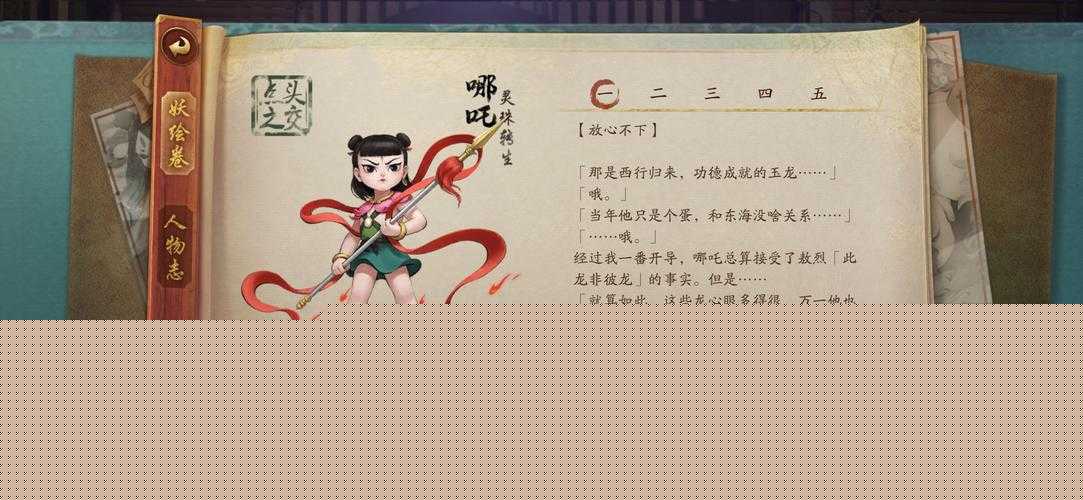 妖绘卷
人物志
点头之交
哪吒
灵珠转生
一 二 三 四 五
【放心不下】
「那是西行归来，功德成就的玉龙……」
「哦。」
「当年他只是个蛋，和东海没啥关系……」
「……哦。」
经过我一番开导，哪吒总算接受了敖烈「此
龙非彼龙」的事实。但是……
「就算如此，这些龙心眼多得很，万一他也